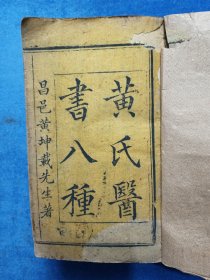 黃氏醫
書八種
昌邑黃坤載先生著